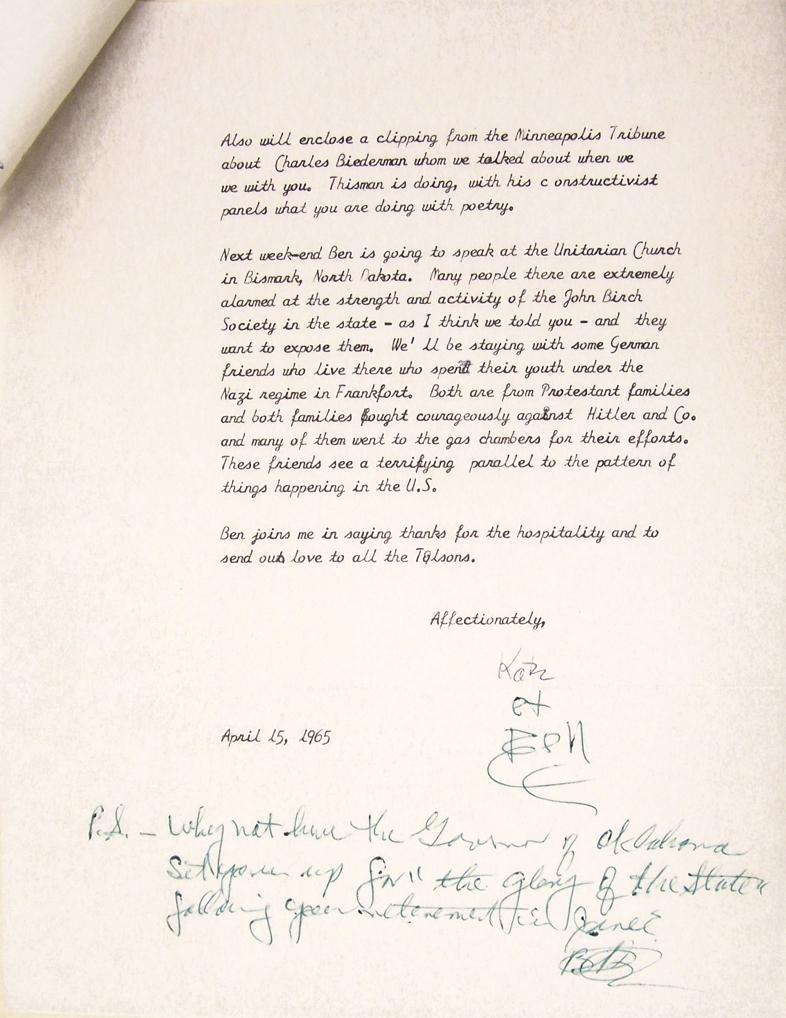 Also will enclose a clipping from the Minneapolis Tribune
about Charles Biederman whom we talked about when we
we with you. Thisman is doing, with his c onstructivist
panels what you are doing with poetry.
Next week-end Ben is going to speak at the Unitarian Church
in Bismark, North Dakota. Many people there are extremely
alarmed at the strength and activity of the John Birch
Society in the state - as I think we told you - and they
want to expose them. We' ll be staying with some German
friends who live there who spent their youth under the
Nazi regime in Frankfort. Both are from Protestant families
and both families fought courageously against Hitler and Co.
and many of them went to the gas chambers for their efforts.
These friends see a terrifying parallel to the pattern of
things happening in the U.S.
Ben joins me in saying thanks for the hospitality and to
send our love to all the Tolsons.
Affectionately,
Kate
et
Ben
April 15, 1965
P.S. - Why not have the Governor of Oklahoma
set you up for "the glory of the State"
following your retirement in June?